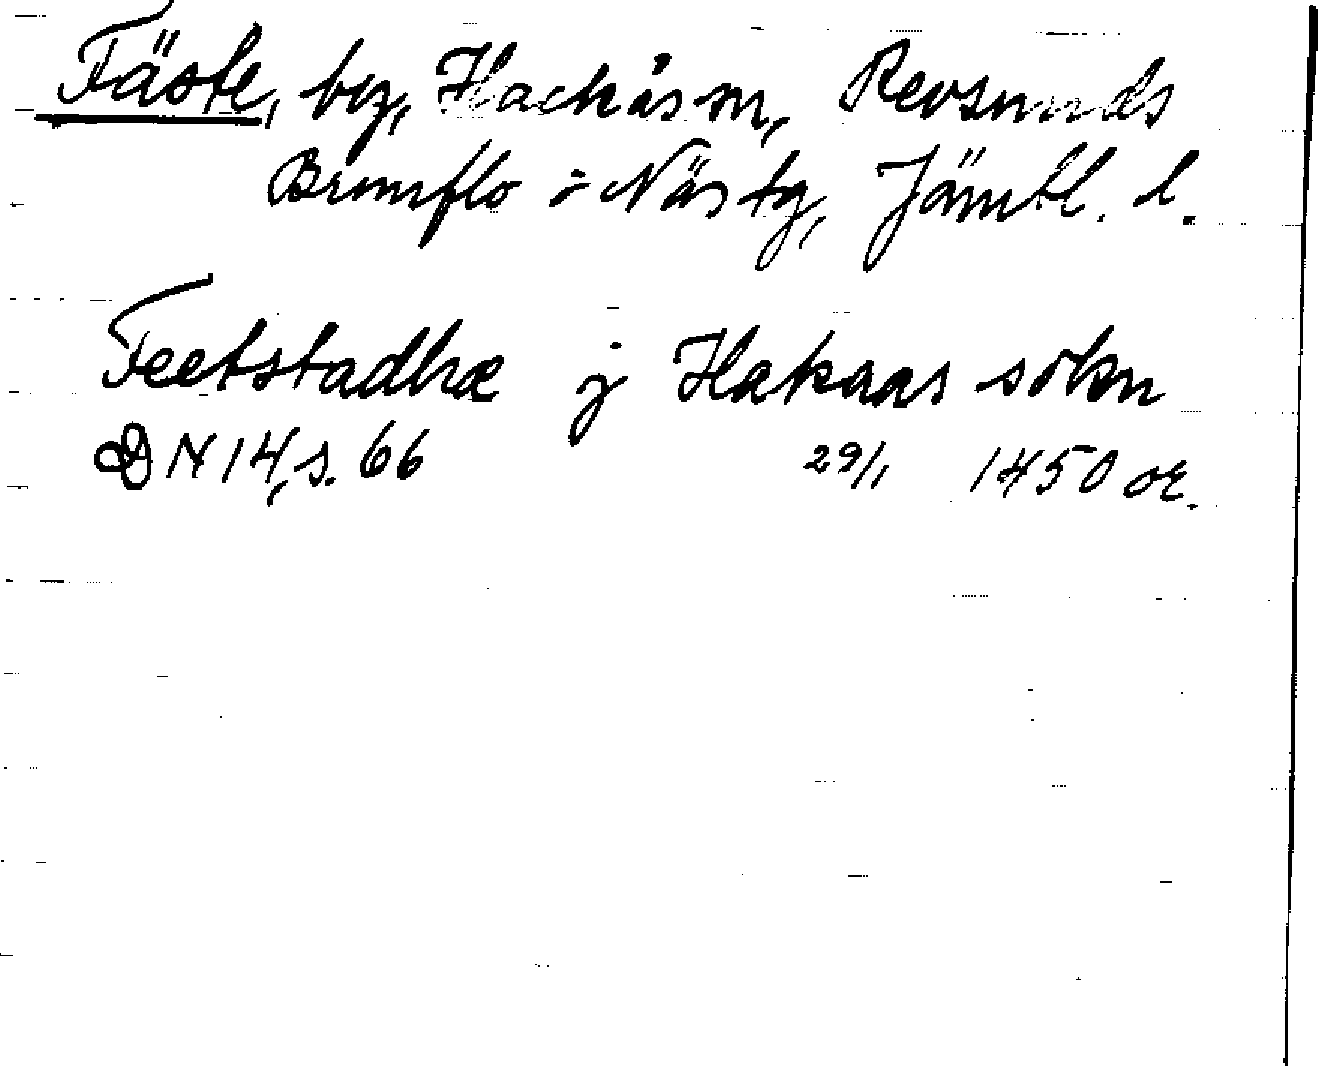 Fäste, by, Hackås sn, Revsunds
Brunflo o Näs tg, Jämtl. l.
Feetstadhæ j Hakaas sokn
DN 14, s. 66 29/1 1450 or.